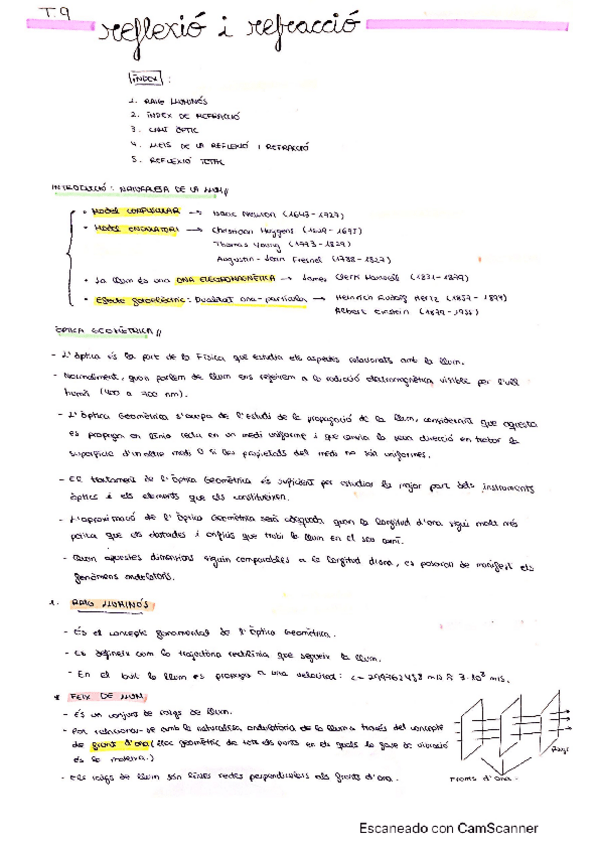 T.9
reflexió i refracció
ÍNDEX:
1. RAIG LLUMINÓS
2. ÍNDEX DE REFRACCIÓ
3. CAMÍ ÒPTIC
4. LLEIS DE LA REFLEXIÓ I REFRACCIÓ
5. REFLEXIÓ TOTAL
INTRODUCCIÓ: NATURALESA DE LA LLUM//
• MODEL CORPUSCULAR → Isaac Newton (1643-1727)
• MODEL ONDULATORI → Christiaan Huygens (1629-1695)
Thomas Young (1773-1829)
Augustin-Jean Fresnel (1788-1827)
• La llum és una ONA ELECTROMAGNÈTICA → James Clerk Maxwell (1831-1879)
• Efecte fotoelèctric: Dualitat ona-partícula → Heinrich Rudolf Hertz (1857-1894)
Albert Einstein (1879-1955)
ÒPTICA GEOMÈTRICA//
- L'òptica és la part de la Física que estudia els aspectes relacionats amb la llum.
- Normalment, quan parlem de llum ens referim a la radiació electromagnètica visible per l'ull
humà (400 a 700 nm).
- L'Òptica Geomètrica s'ocupa de l'estudi de la propagació de la llum, considerant que aquesta
es propaga en línia recta en un medi uniforme i que canvia la seva direcció en trobar la
superfície d'un altre medi o si les propietats del medi no són uniformes.
- El tractament de l'Òptica Geomètrica és suficient per estudiar la major part dels instruments
òptics i els elements que els constitueixen.
- L'aproximació de l'Òptica Geomètrica serà adequada quan la longitud d'ona sigui molt més
petita que els obstacles i orificis que trobi la llum en el seu camí.
- Quan aquestes dimensions siguin comparables a la longitud d'ona, es posaran de manifest els
fenòmens ondulatoris.
1. RAIG LLUMINÓS
- És el concepte fonamental de l'Òptica Geomètrica.
- Es defineix com la trajectòria rectilínia que segueix la llum.
- En el buit la llum es propaga a una velocitat: c = 299792458 m/s ≈ 3·10⁸ m/s.
* FEIX DE LLUM
- És un conjunt de raigs de llum.
- Pot relacionar-se amb la naturalesa ondulatòria de la llum a través del concepte
de front d'ona (lloc geomètric de tots els punts en els quals la fase de vibració
és la mateixa.)
- Els raigs de llum són línies rectes perpendiculars als fronts d'ona.
Raigs
Fronts d'ona.
Escaneado con CamScanner